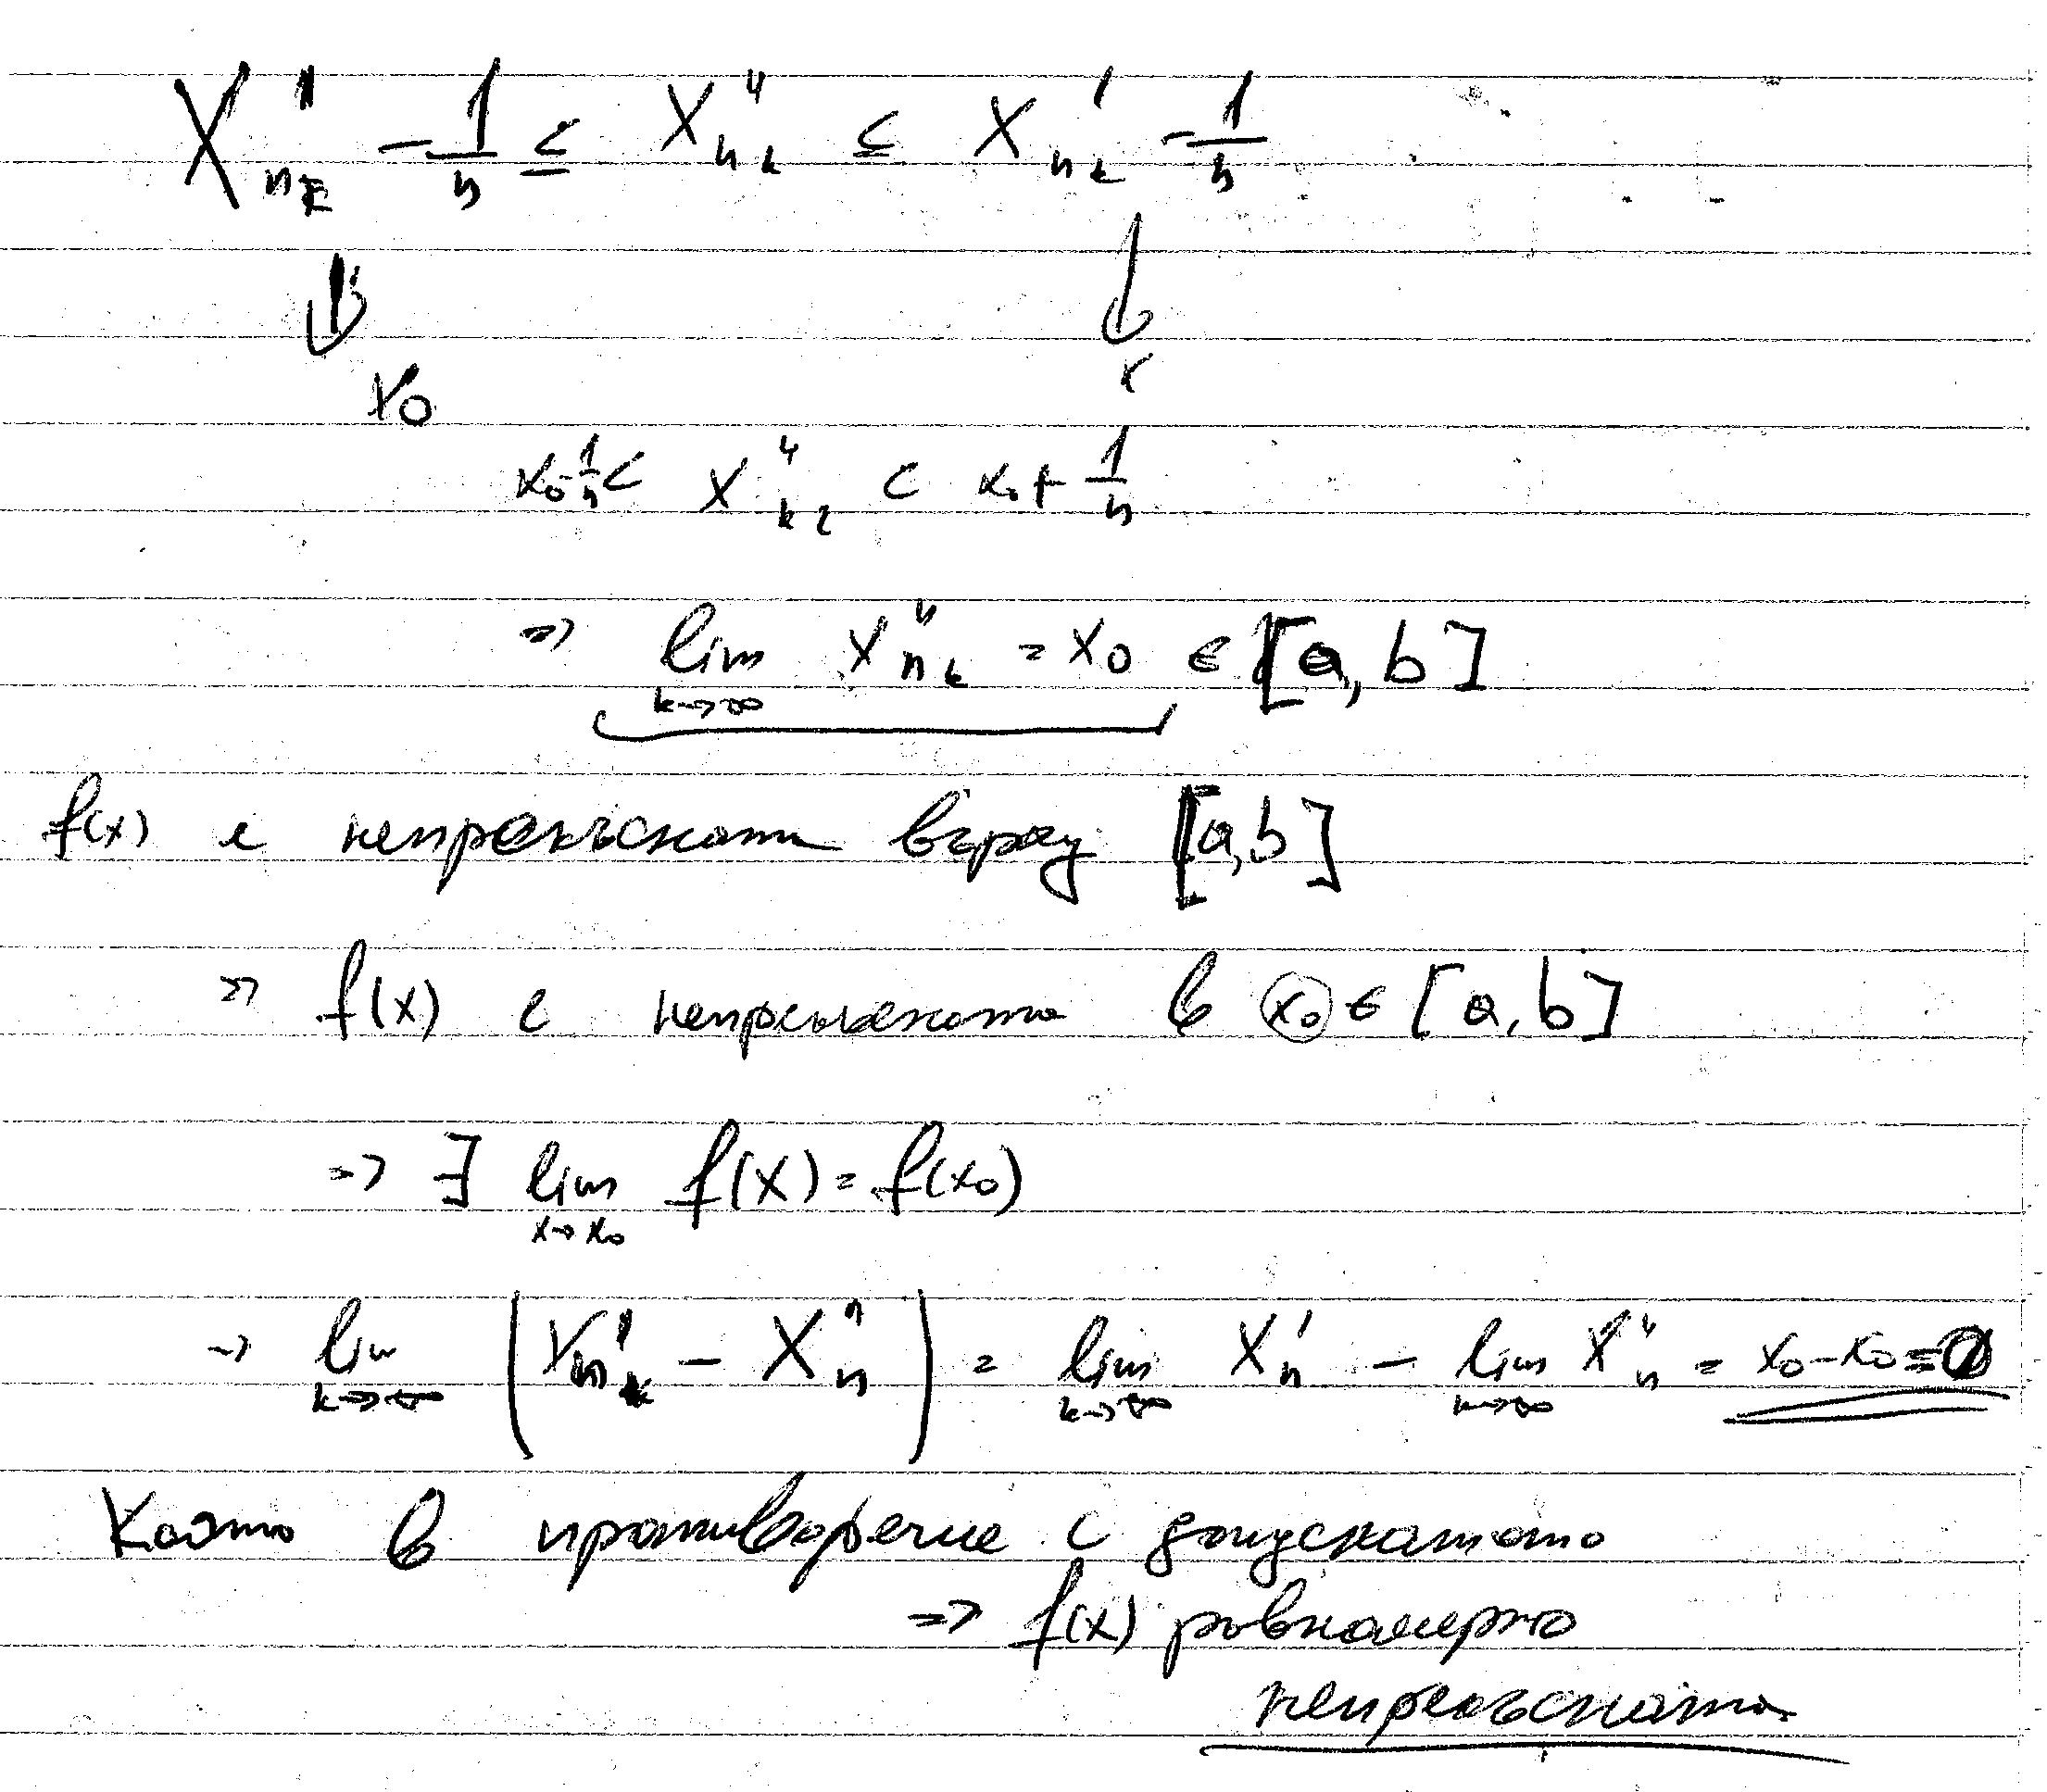 x″ₙₖ - 1/n ≤ x″ₙₖ ≤ x′ₙₖ - 1/n
↓ ↓
x₀ x
x₀ - 1/n < x″ₖ₂ < x₀ + 1/n
⇒ lim x″ₙₖ = x₀ ∈ [a, b]
k→∞
f(x) е непрекъсната върху [a,b]
⇒ f(x) е непрекъсната в x₀ ∈ [a, b]
⇒ ∃ lim f(x) = f(x₀)
x→x₀
⇒ lim (x′ₙₖ - x″ₙ) = lim x′ₙ - lim x″ₙ = x₀ - x₀ = 0
k→∞ k→∞ k→∞
Което в противоречие с допускането
⇒ f(x) равномерно
непрекъсната